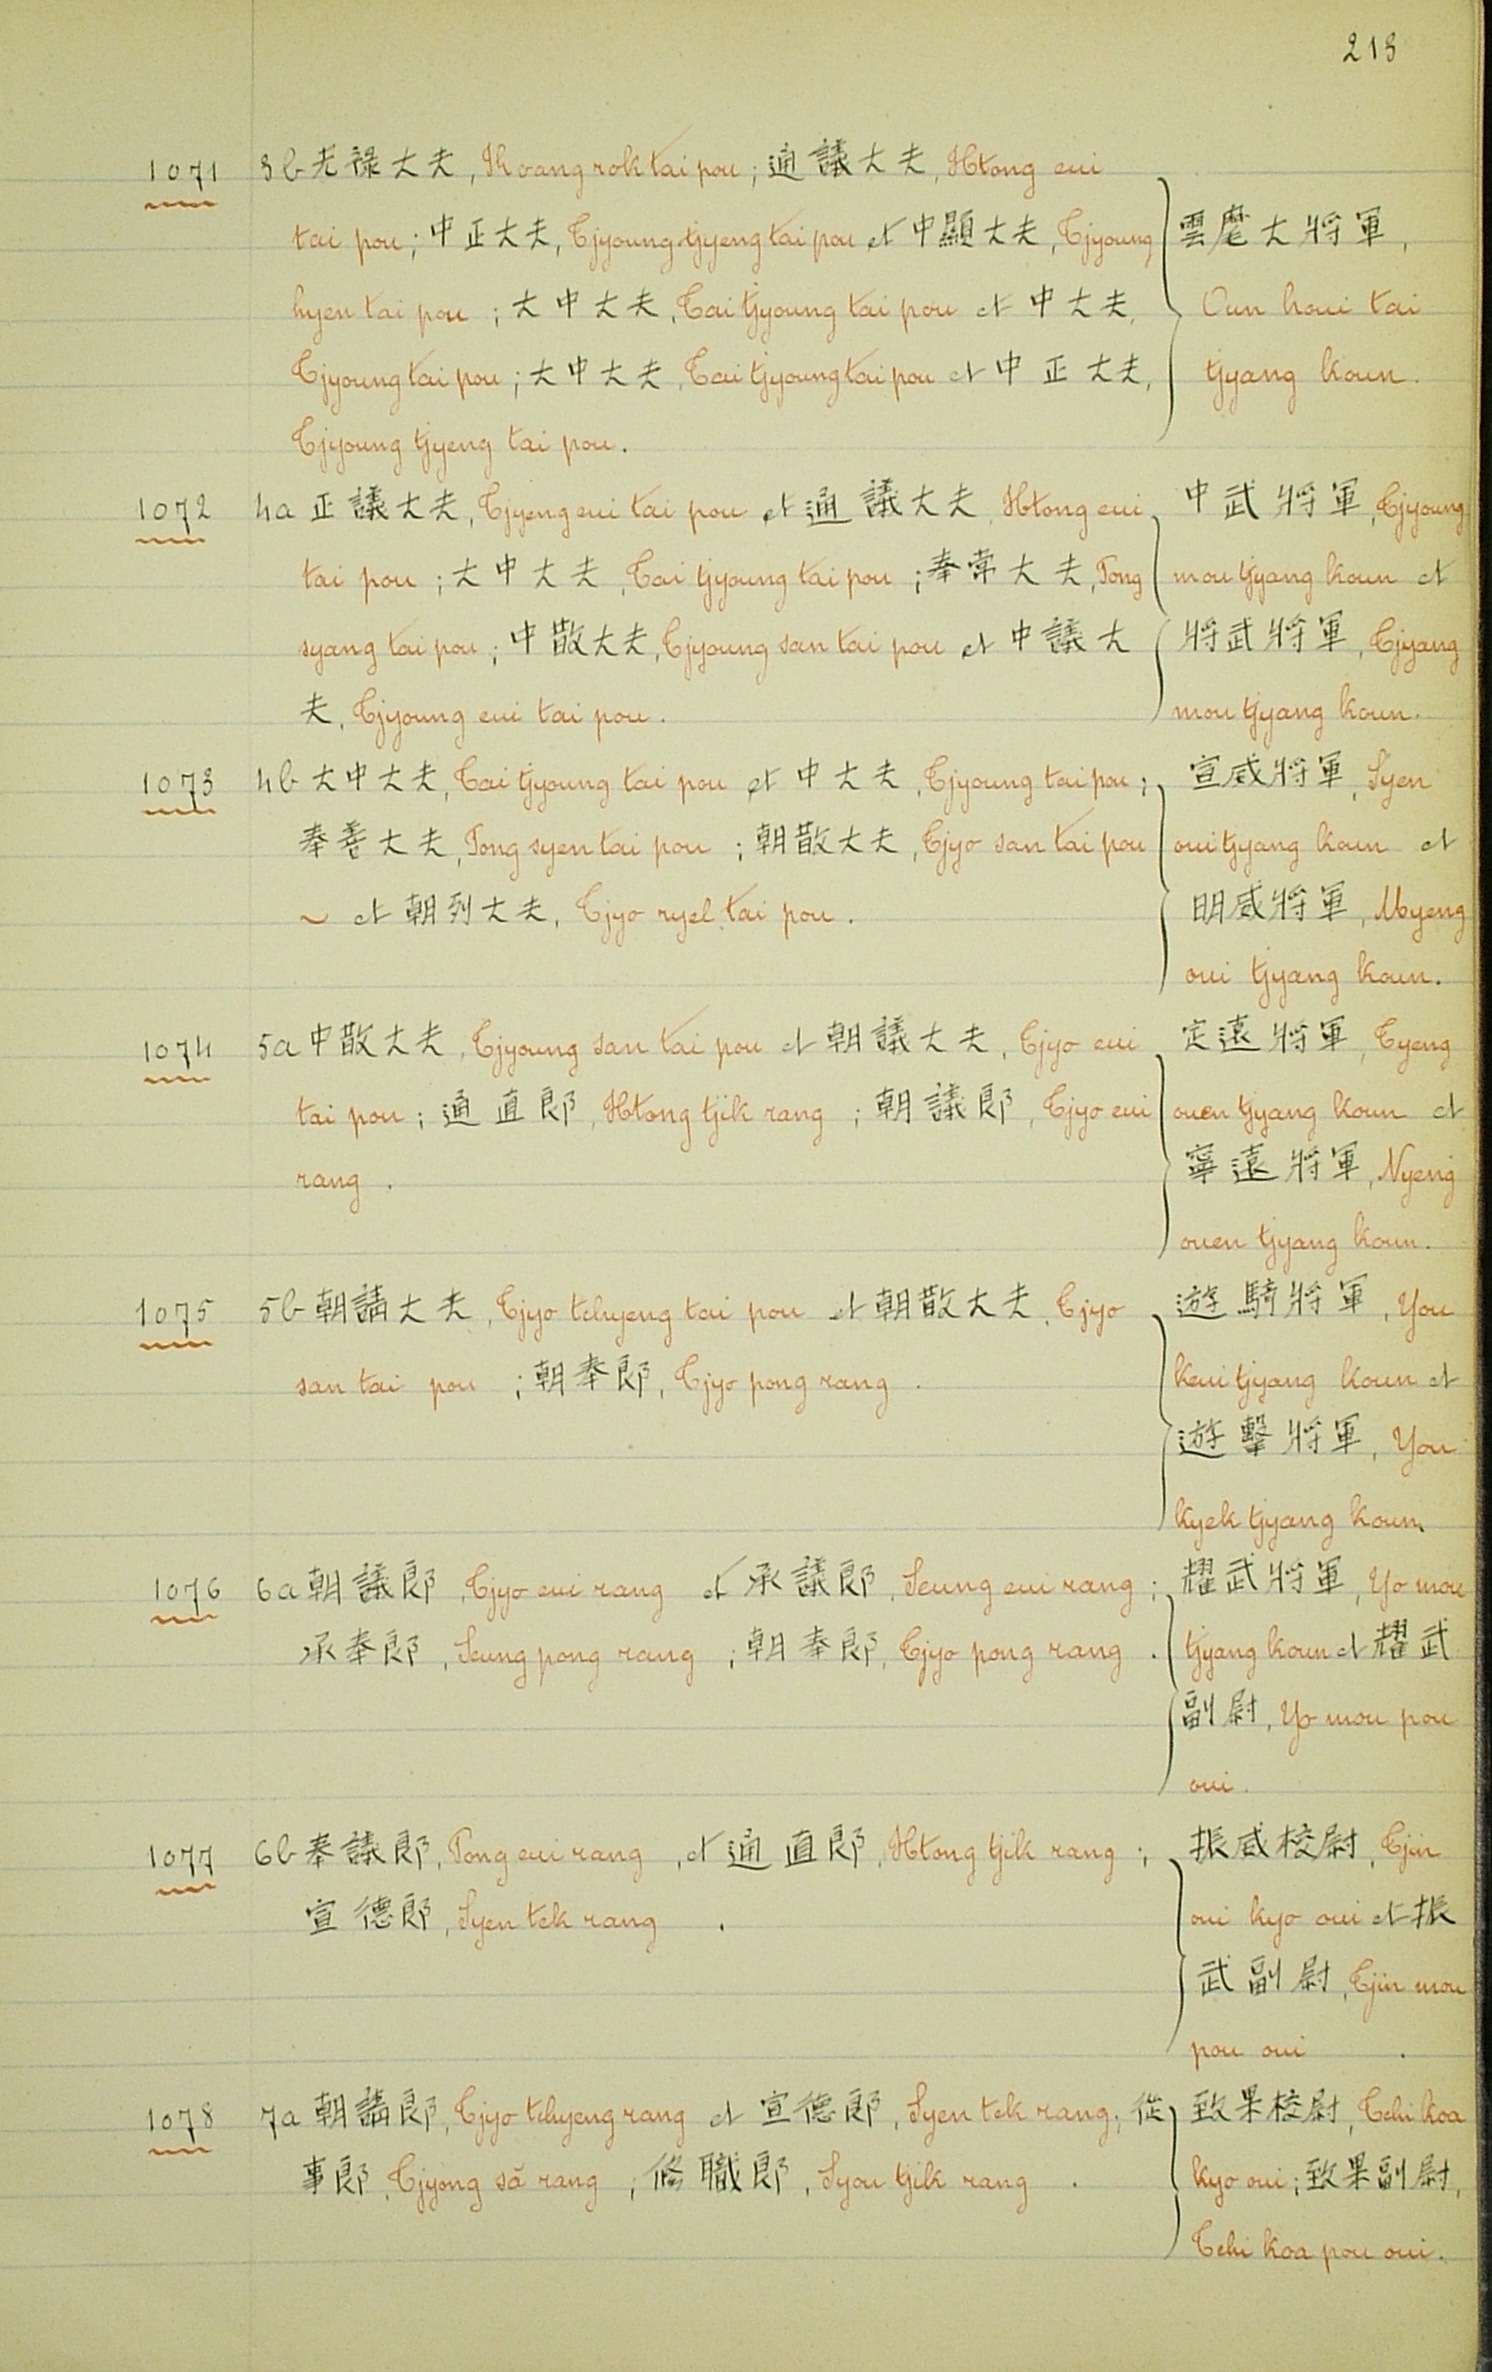 213
1071 3b 光祿大夫, Koang rok tai pou; 通議大夫, Htong eui
tai pou; 中正大夫, Tjyoung tjyeng tai pou et 中顯大夫, Tjyoung
hyen tai pou; 大中大夫, Tai tjyoung tai pou et 中大夫,
Tjyoung tai pou; 大中大夫, Tai tjyoung tai pou et 中正大夫,
Tjyoung tjyeng tai pou.
雲麾大將軍,
Oun houi tai
tjyang koun.
1072 4a 正議大夫, Tjyeng eui tai pou et 通議大夫, Htong eui
tai pou; 大中大夫, Tai tjyoung tai pou; 奉常大夫, Pong
syang tai pou; 中散大夫, Tjyoung san tai pou et 中議大
夫, Tjyoung eui tai pou.
中武將軍, Tjyoung
mou tjyang koun et
將武將軍, Tjyang
mou tjyang koun.
1073 4b 大中大夫, Tai tjyoung tai pou et 中大夫, Tjyoung tai pou;
奉善大夫, Pong syen tai pou; 朝散大夫, Tjyo san tai pou
~ et 朝列大夫, Tjyo ryel tai pou.
宣威將軍, Syen
oui tjyang koun et
明威將軍, Myeng
oui tjyang koun.
1074 5a 中散大夫, Tjyoung san tai pou et 朝議大夫, Tjyo eui
tai pou; 通直郎, Htong tjik rang; 朝議郎, Tjyo eui
rang.
定遠將軍, Tyeng
ouen tjyang koun et
寧遠將軍, Nyeng
ouen tjyang koun.
1075 5b 朝請大夫, Tjyo tchyeng tai pou et 朝散大夫, Tjyo
san tai pou; 朝奉郎, Tjyo pong rang.
遊騎將軍, You
keui tjyang koun et
遊擊將軍, You
kyek tjyang koun.
1076 6a 朝議郎, Tjyo eui rang et 承議郎, Seung eui rang;
承奉郎, Seung pong rang; 朝奉郎, Tjyo pong rang.
耀武將軍, Yo mou
tjyang koun et 耀武
副尉, Yo mou pou
oui.
1077 6b 奉議郎, Pong eui rang, et 通直郎, Htong tjik rang;
宣德郎, Syen tek rang.
振威校尉, Tjin
oui kyo oui et 振
武副尉, Tjin mou
pou oui.
1078 7a 朝請郎, Tjyo tchyeng rang et 宣德郎, Syen tek rang; 從
事郎, Tjyong să rang; 修職郎, Syou tjik rang.
致果校尉, Tchi koa
kyo oui; 致果副尉,
Tchi koa pou oui.